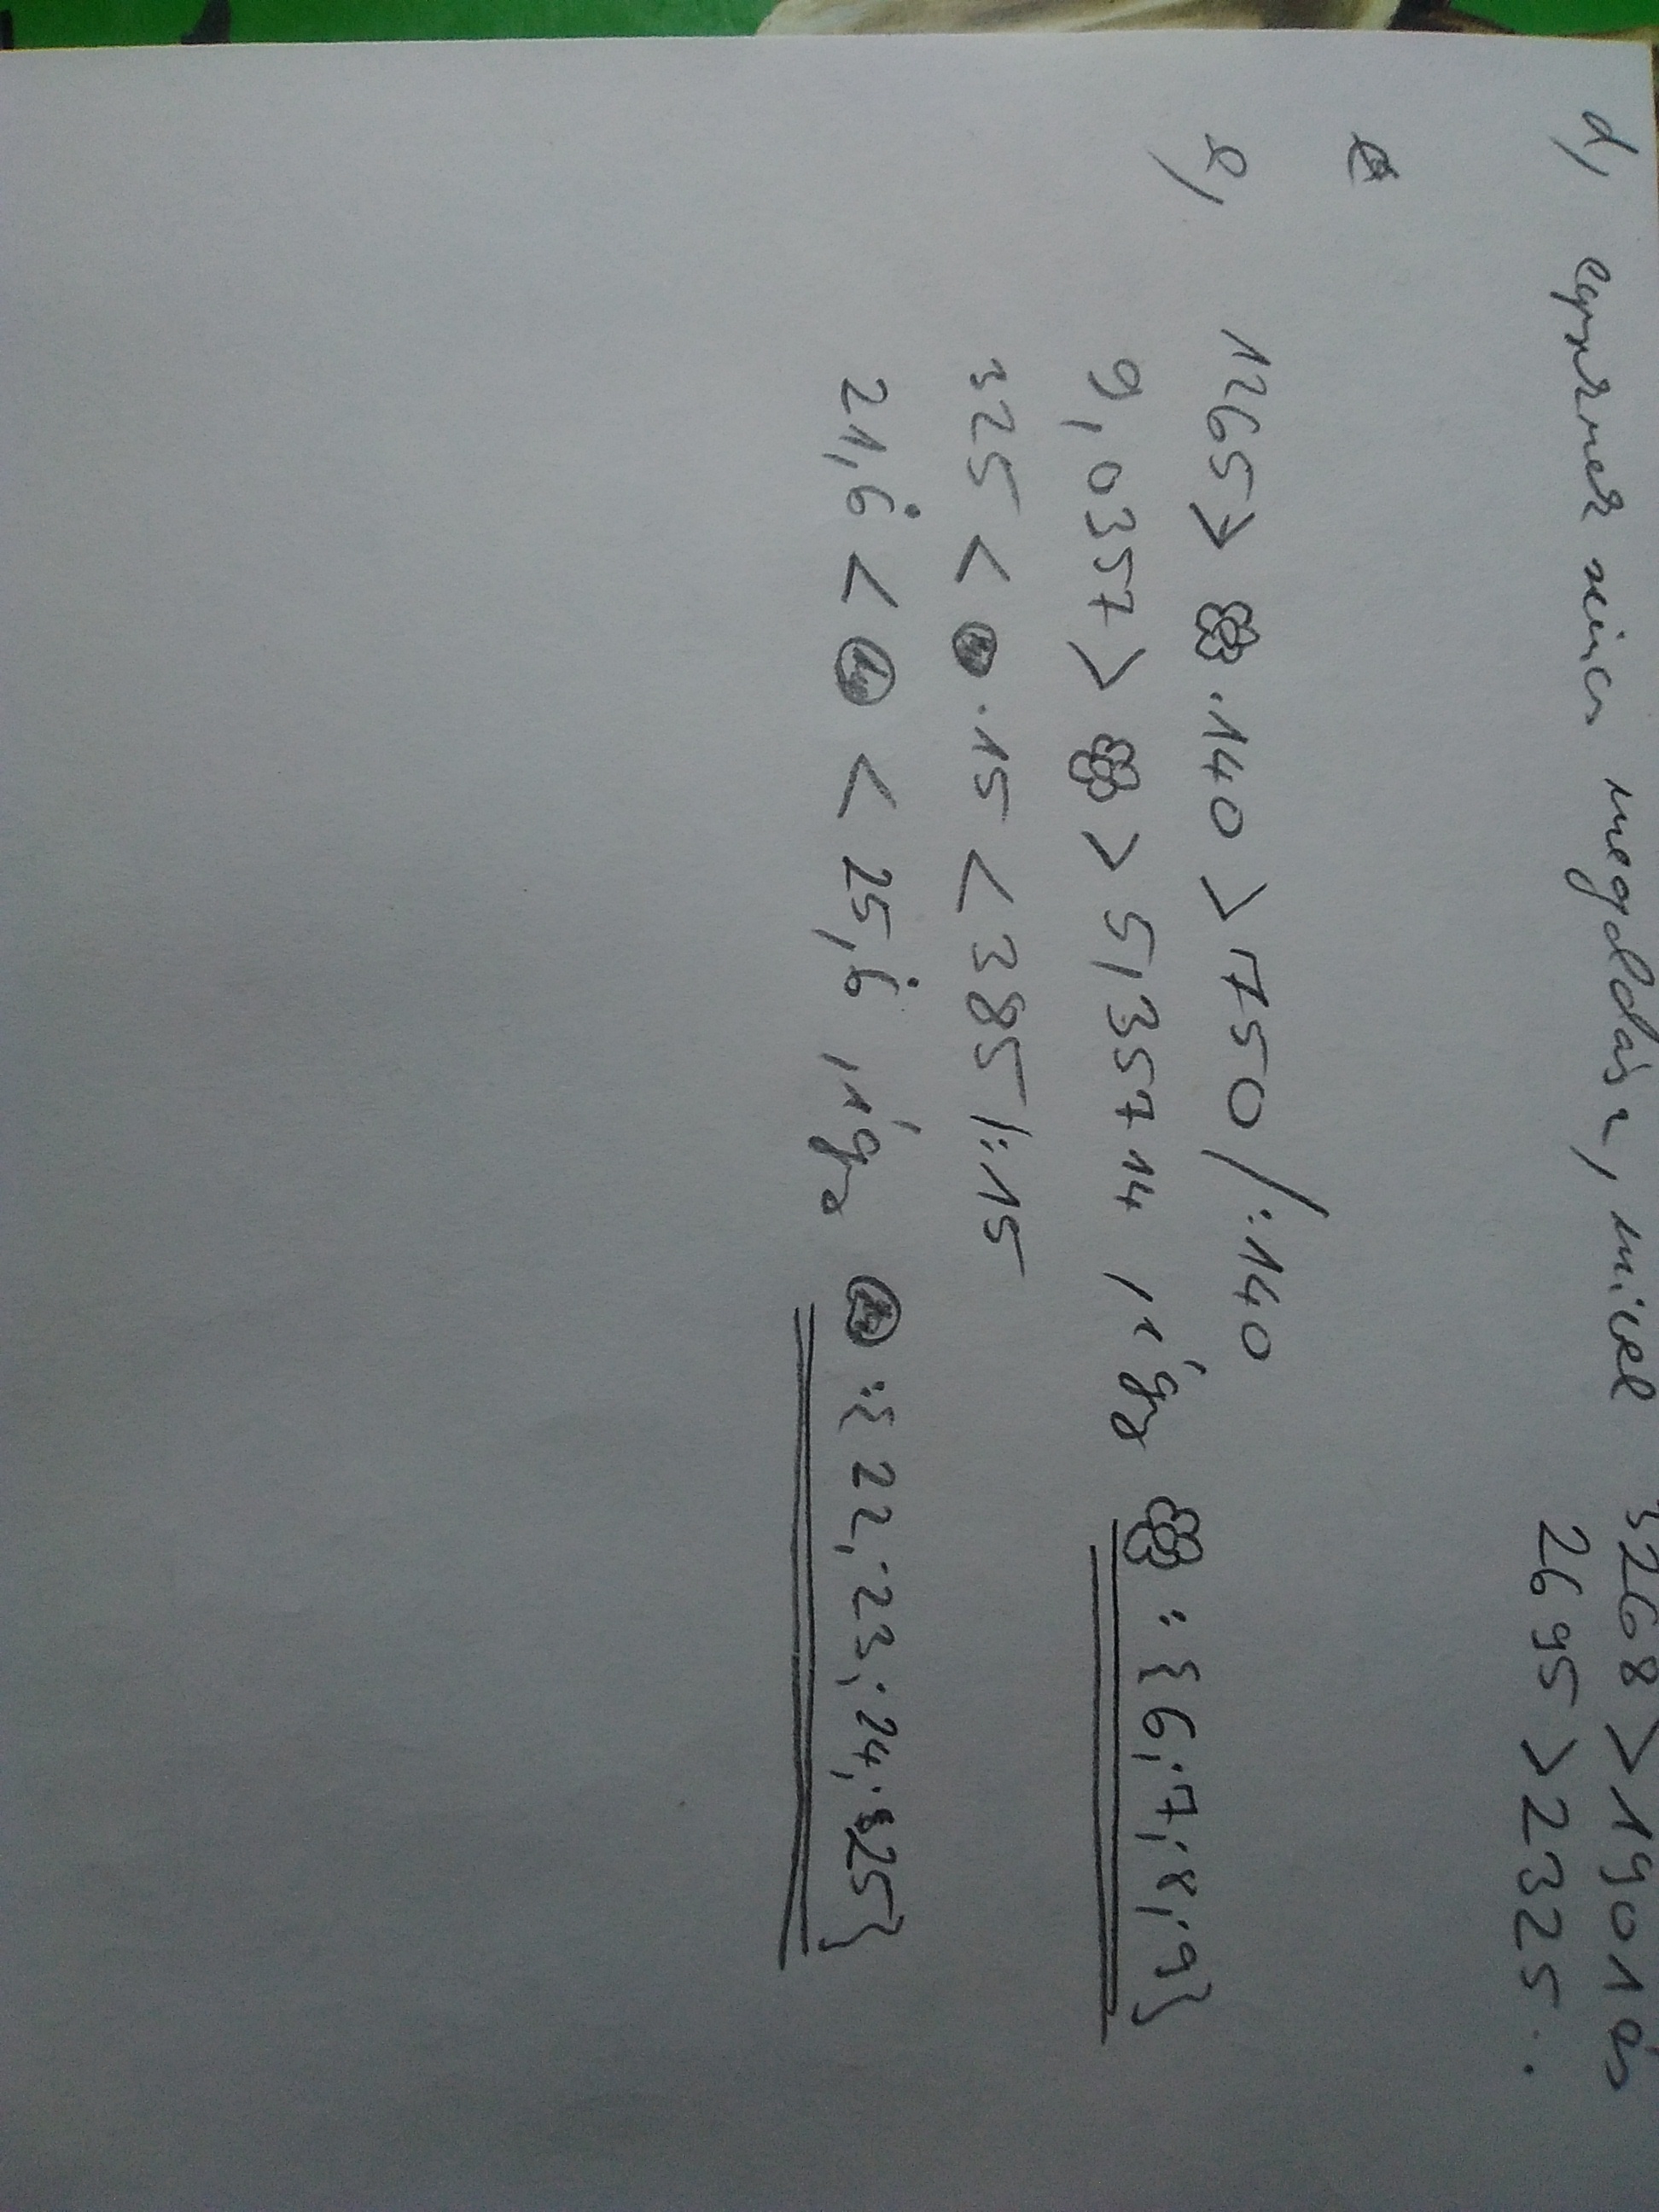 d, egyiknek sincs megoldása, mivel 3268 > 1901 és
2695 > 2325.
e,
1265 > · 140 > 750 /:140
9,0357 > > 5,35714 így : {6; 7; 8; 9}
325 < · 15 < 385 /:15
21,6̇ < < 25,6̇ így : {22; 23; 24; 25}